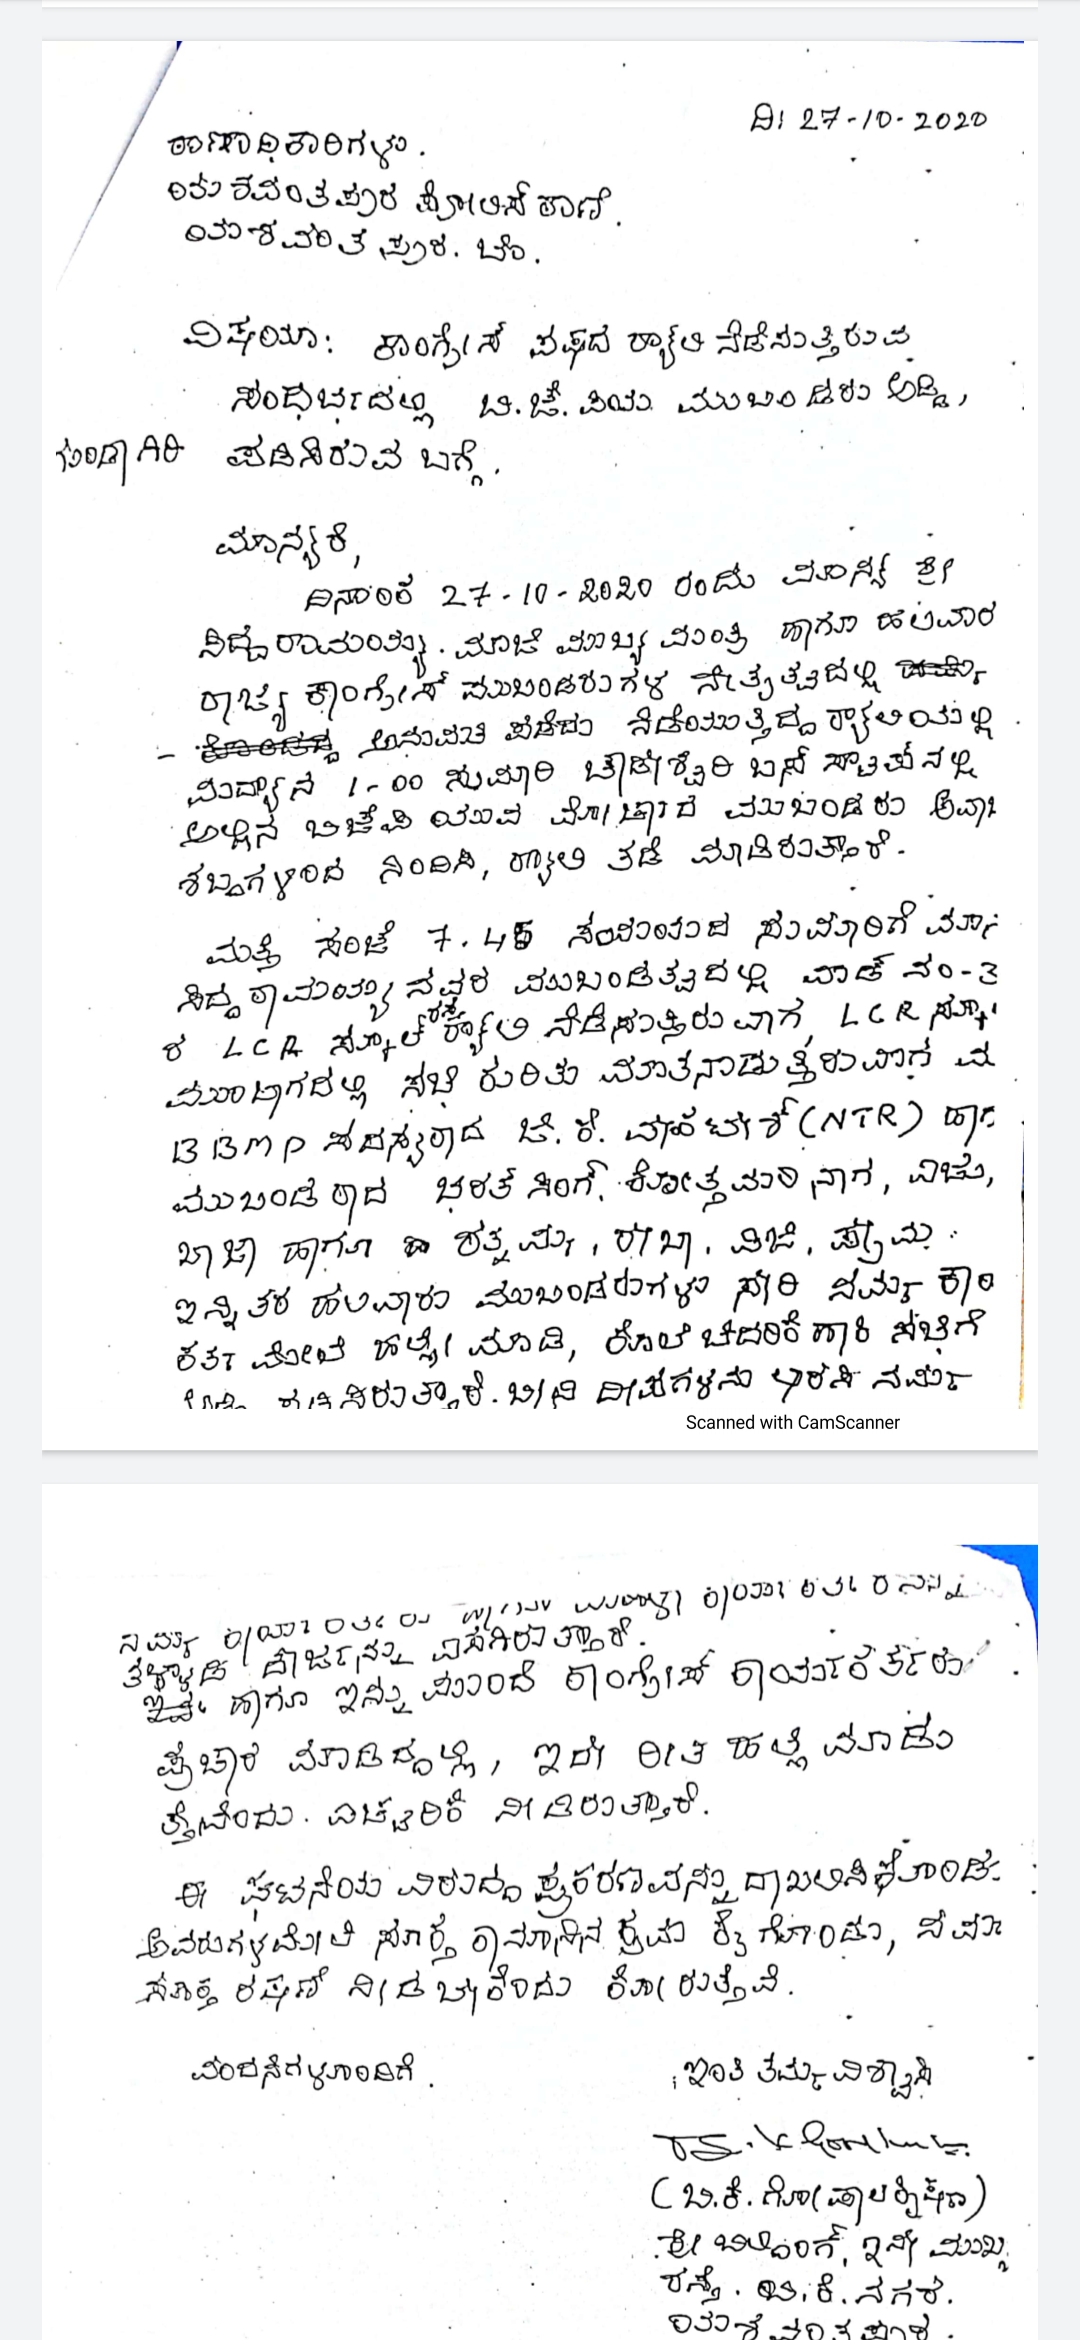 ದಿ: 27-10-2020
ಠಾಣಾಧಿಕಾರಿಗಳು.
ಯಶವಂತಪುರ ಪೋಲಿಸ್ ಠಾಣೆ.
ಯಶವಂತಪುರ. ಬೆಂ.
ವಿಷಯ: ಕಾಂಗ್ರೇಸ್ ಪಕ್ಷದ ರ್ಯಾಲಿ ನೆಡೆಸುತ್ತಿರುವ
ಸಂಧರ್ಭದಲ್ಲಿ ಬಿ.ಜೆ.ಪಿಯ ಮುಖಂಡರು ಅಡ್ಡಿ,
ಗುಂಡಾಗಿರಿ ಪಡಿಸಿರುವ ಬಗ್ಗೆ.
ಮಾನ್ಯರೆ,
ದಿನಾಂಕ 27-10-2020 ರಂದು ಮಾನ್ಯ ಶ್ರೀ
ಸಿದ್ದರಾಮಯ್ಯ. ಮಾಜಿ ಮುಖ್ಯ ಮಂತ್ರಿ ಹಾಗೂ ಹಲವಾರ
ರಾಜ್ಯ ಕಾಂಗ್ರೇಸ್ ಮುಖಂಡರುಗಳ ನೇತೃತ್ವದಲ್ಲಿ
ಅನುಮತಿ ಪಡೆದು ನೆಡೆಯುತ್ತಿದ್ದ ರ್ಯಾಲಿಯಲ್ಲಿ
ಮಧ್ಯಾನ 1-00 ಸುಮಾರಿ ಚೌಡೇಶ್ವರಿ ಬಸ್ ಸ್ಟಾಪ್ ನಲ್ಲಿ
ಅಲ್ಲಿನ ಬಿಜೆಪಿ ಯುವ ಮೋರ್ಚಾದ ಮುಖಂಡರು ಅವಾ
ಶಬ್ದಗಳಿಂದ ನಿಂದಿಸಿ, ರ್ಯಾಲಿ ತಡೆ ಮಾಡಿರುತ್ತಾರೆ.
ಮತ್ತೆ ಸಂಜೆ 7.45 ಸಮಯದ ಸುಮಾರಿಗೆ ಮಾ
ಸಿದ್ದರಾಮಯ್ಯನವರ ಮುಖಂಡತ್ವದಲ್ಲಿ ವಾರ್ಡ್ ನಂ-3
ರ LCR ಸ್ಕೂಲ್ ರಸ್ತೆ ರ್ಯಾಲಿ ನೆಡೆಸುತ್ತಿರುವಾಗ LCR ಸ್ಕೂ
ಮುಂಬಾಗದಲ್ಲಿ ಸಭೆ ಕುರಿತು ಮಾತನಾಡುತ್ತಿರುವಾಗ ಮ
BBMP ಸದಸ್ಯರಾದ ಜೆ.ಕೆ. ವೆಂಕಟೇಶ್ (NTR) ಹಾಗ
ಮುಖಂಡರಾದ ಭರತ್ ಸಿಂಗ್, ಕೋತ್ತಮರಿ ನಾಗ, ವಿಜು,
ಬಾಷಾ ಹಾಗೂ ರತ್ನಮ್ಮ, ರೇಖಾ, ವಿಜಿ,
ಇನ್ನಿತರ ಹಲವಾರು ಮುಖಂಡರುಗಳು ಸೇರಿ ನಮ್ಮ ಕಾರ
ಕರ್ತ ಮೇಲೆ ಹಲ್ಲೆ ಮಾಡಿ, ಕೊಲೆ ಬೆದರಿಕೆ ಹಾಕಿ ಸಭೆಗೆ
ಅಡ್ಡಿ ಪಡಿಸಿರುತ್ತಾರೆ. ಬೀದಿ ದೀಪಗಳನು ಆರಿಸಿ ನಮ್ಮ
Scanned with CamScanner
ನಮ್ಮ ಕಾರ್ಯಕರ್ತರು ಮಹಿಳಾ ಕಾರ್ಯಕರ್ತರನ್ನು
ತಳ್ಳಾಡಿ ದೌರ್ಜನ್ಯ ಎಸಗಿರುತ್ತಾರೆ.
ಹಾಗೂ ಇನ್ನು ಮುಂದೆ ಕಾಂಗ್ರೇಸ್ ಕಾರ್ಯಕರ್ತರು
ಪ್ರಚಾರ ಮಾಡಿದ್ದಲ್ಲಿ, ಇದೇ ರೀತಿ ಹಲ್ಲೆ ಮಾಡು
ತ್ತೇವೆಂದು. ಎಚ್ಚರಿಕೆ ನೀಡಿರುತ್ತಾರೆ.
ಈ ಘಟನೆಯ ವಿರುದ್ದ ಪ್ರಕರಣವನ್ನು ದಾಖಲಿಸಿಕೊಂಡು
ಅವರುಗಳ ಮೇಲೆ ಸೂಕ್ತ ಕಾನೂನಿನ ಕ್ರಮ ಕೈಗೊಂಡು, ನಮಗೆ
ಸೂಕ್ತ ರಕ್ಷಣೆ ನೀಡಬೇಕೆಂದು ಕೋರುತ್ತೇವೆ.
ವಂದನೆಗಳೊಂದಿಗೆ.
ಇಂತಿ ತಮ್ಮ ವಿಶ್ವಾಸಿ
(ಬಿ.ಕೆ. ಗೋಪಾಲಕೃಷ್ಣ)
ಶ್ರೀ ಬಿಲ್ಡಿಂಗ್, ಇನೇ ಮುಖ್ಯ
ರಸ್ತೆ. ಬಿ.ಕೆ. ನಗರ.
ಯಶವಂತಪುರ.